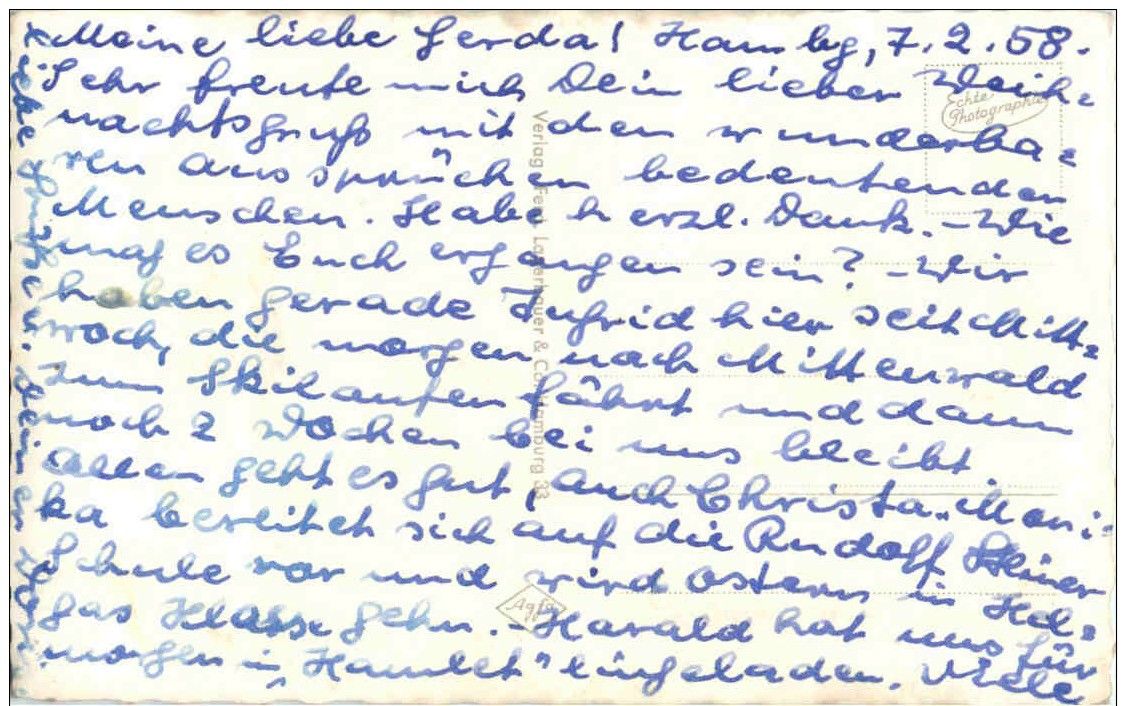 Meine liebe Gerda! Hambg, 7.2.58.
Sehr freute mich Dein lieber Weih=
nachtsgruß mit den wunderba=
ren Aussprüchen bedeutenden
Menschen. Habe herzl. Dank. - Wie
mag es Euch ergangen sein? - Wir
haben gerade Ingrid hier seit Mitt=
woch, die morgen nach Mittenwald
zum Skilaufen fährt und dann
noch 2 Wochen bei uns bleibt.
Allen geht es gut, auch Christa. Moni=
ka bereitet sich auf die Rudolf Steiner
Schule vor und wird Ostern in Hel=
gas Klasse gehn. - Harald hat uns für
morgen in „Hamlet" eingeladen. Viele
liebe Grüße
Echte
Photographie
Verlag Ferd. Lagerbauer & Co. Hamburg 33
Agfa